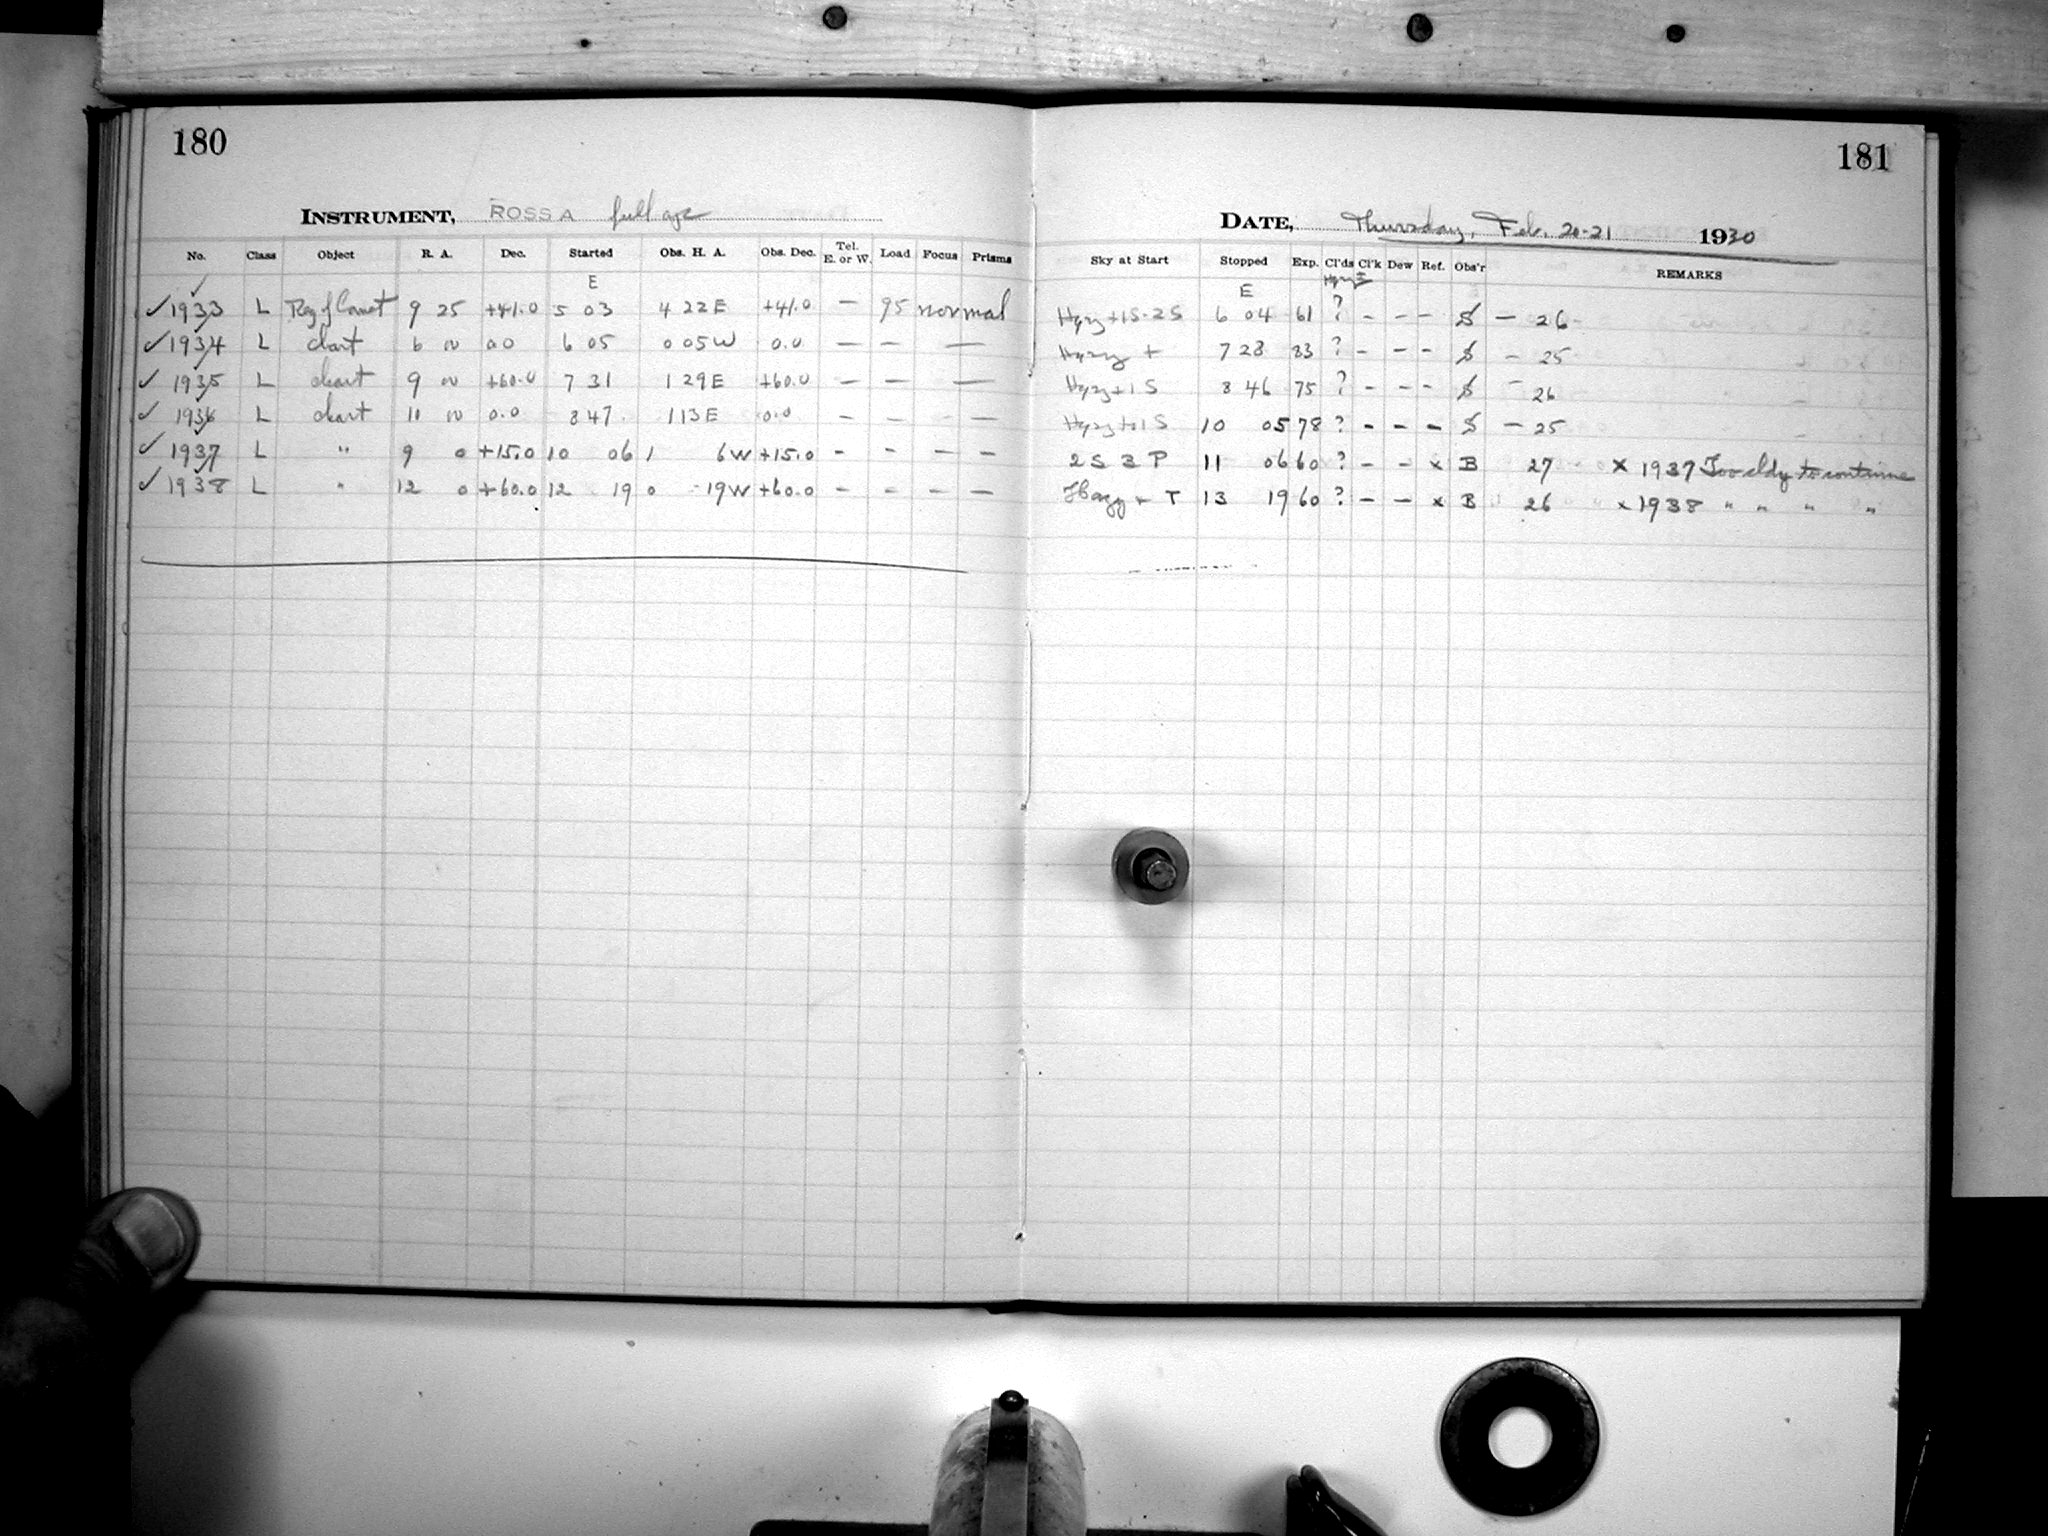 180
INSTRUMENT, ROSS A full ape
No. Class Object R. A. Dec. Started Obs. H. A. Obs. Dec. Tel. E. or W. Load Focus Prisms
E
✓ 1933 L Reg of Comet 9 25 +41.0 5 03 4 22 E +41.0 — 95 normal
✓ 1934 L chart 6 00 0 0 6 05 0 05 W 0.0 — — —
✓ 1935 L chart 9 00 +60.0 7 31 1 29 E +60.0 — — —
✓ 1936 L chart 10 00 0.0 8 47 1 13 E 0.0 — — — —
✓ 1937 L " 9 0 +15.0 10 06 1 6 W +15.0 - - - -
✓ 1938 L " 12 0 +60.0 12 19 0 19 W +60.0 - - - -
181
DATE, Thursday, Feb. 20-21 1930
Sky at Start Stopped Exp. Cl'ds Cl'k Dew Ref. Obs'r REMARKS
E
Hazy + 1S-2S 6 04 61 ? - - - S — 26
Hazy + 7 28 83 ? - - - S - 25
Hazy + 1 S 8 46 75 ? - - - S - 26
Hazy + 1 S 10 05 78 ? - - - S — 25
2 S 3 P 11 06 60 ? - - x B 27 x 1937 Too cldy to continue
Hazy + T 13 19 60 ? - - x B 26 x 1938 " " " "